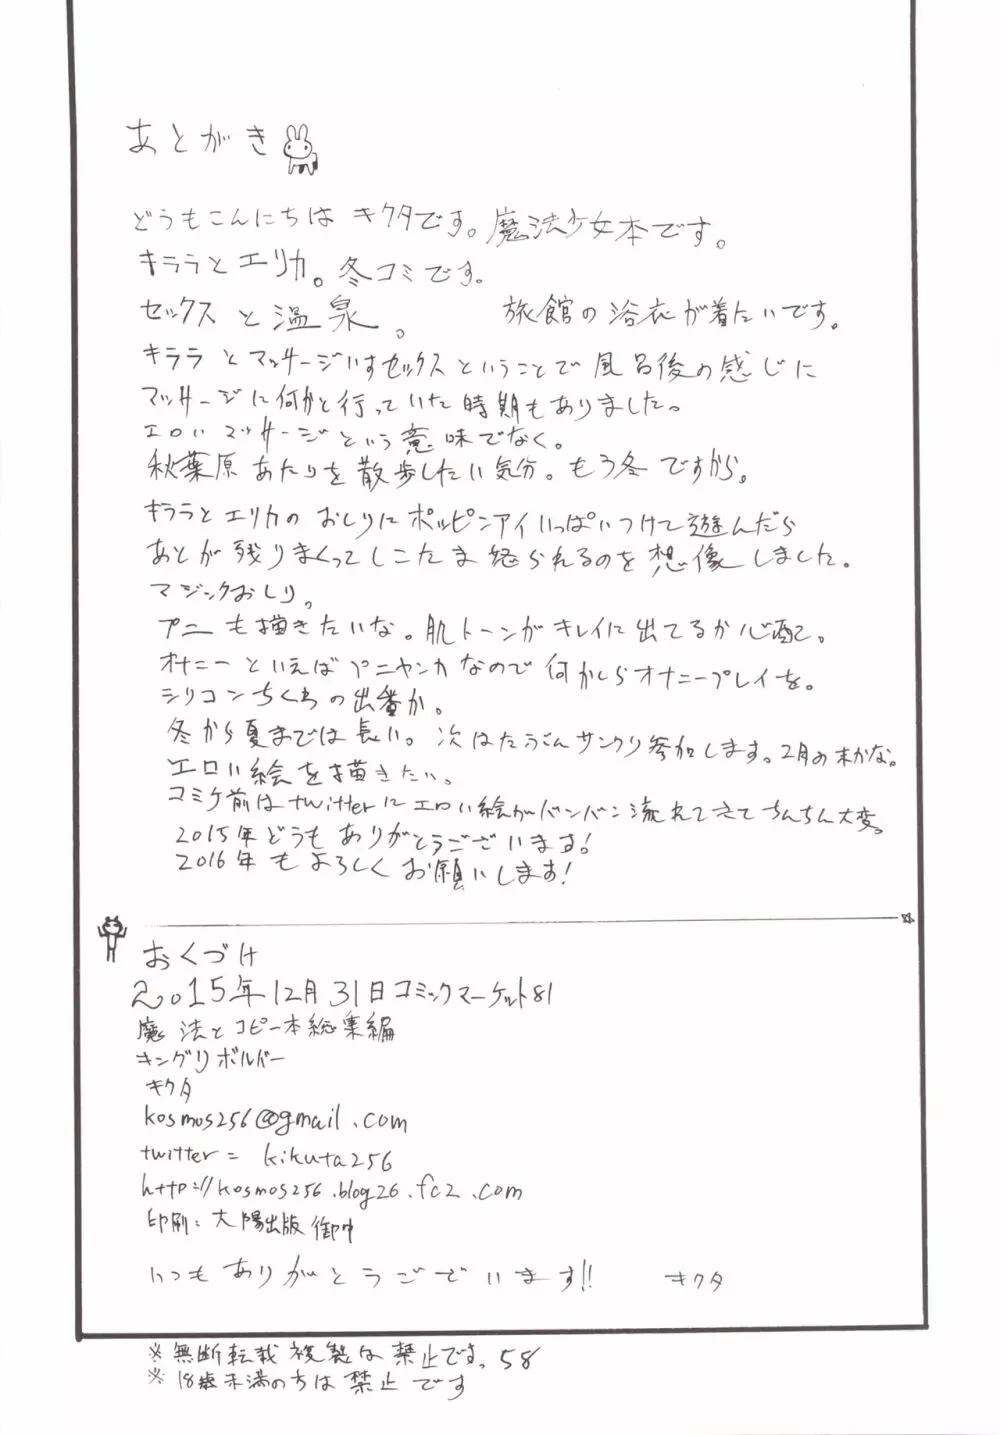 あとがき
どうもこんにちは キクタです。魔法少女本です。
キララとエリカ。冬コミです。
セックスと温泉。 旅館の浴衣が着たいです。
キララとマッサージいすセックスということで風呂後の感じに
マッサージに何かと行っていた時期もありました。
エロいマッサージという意味でなく。
秋葉原あたりを散歩したい気分。もう冬ですから。
キララとエリカのおしりにポッピンアイいっぱいつけて遊んだら
あとが残りまくってしこたま怒られるのを想像しました。
マジックおしり。
プニも描きたいな。肌トーンがキレイに出てるか心配。
オナニーといえばプニャンカなので何かしらオナニープレイを。
シリコンちくわの出番か。
冬から夏までは長い。次はたぶんサンクリ参加します。2月の末かな。
エロい絵を描きたい。
コミケ前はtwitterにエロい絵がバンバン流れてきてちんちん大変。
2015年どうもありがとうございます!
2016年もよろしくお願いします!
おくづけ
2015年12月31日コミックマーケット81
魔法とコピー本総集編
キングリボルバー
キクタ
kosmos256@gmail.com
twitter= kikuta256
http://kosmos256.blog26.fc2.com
印刷:大陽出版 御中
いつもありがとうございます!! キクタ
※無断転載複製は禁止です。58
※18歳未満の方は禁止です